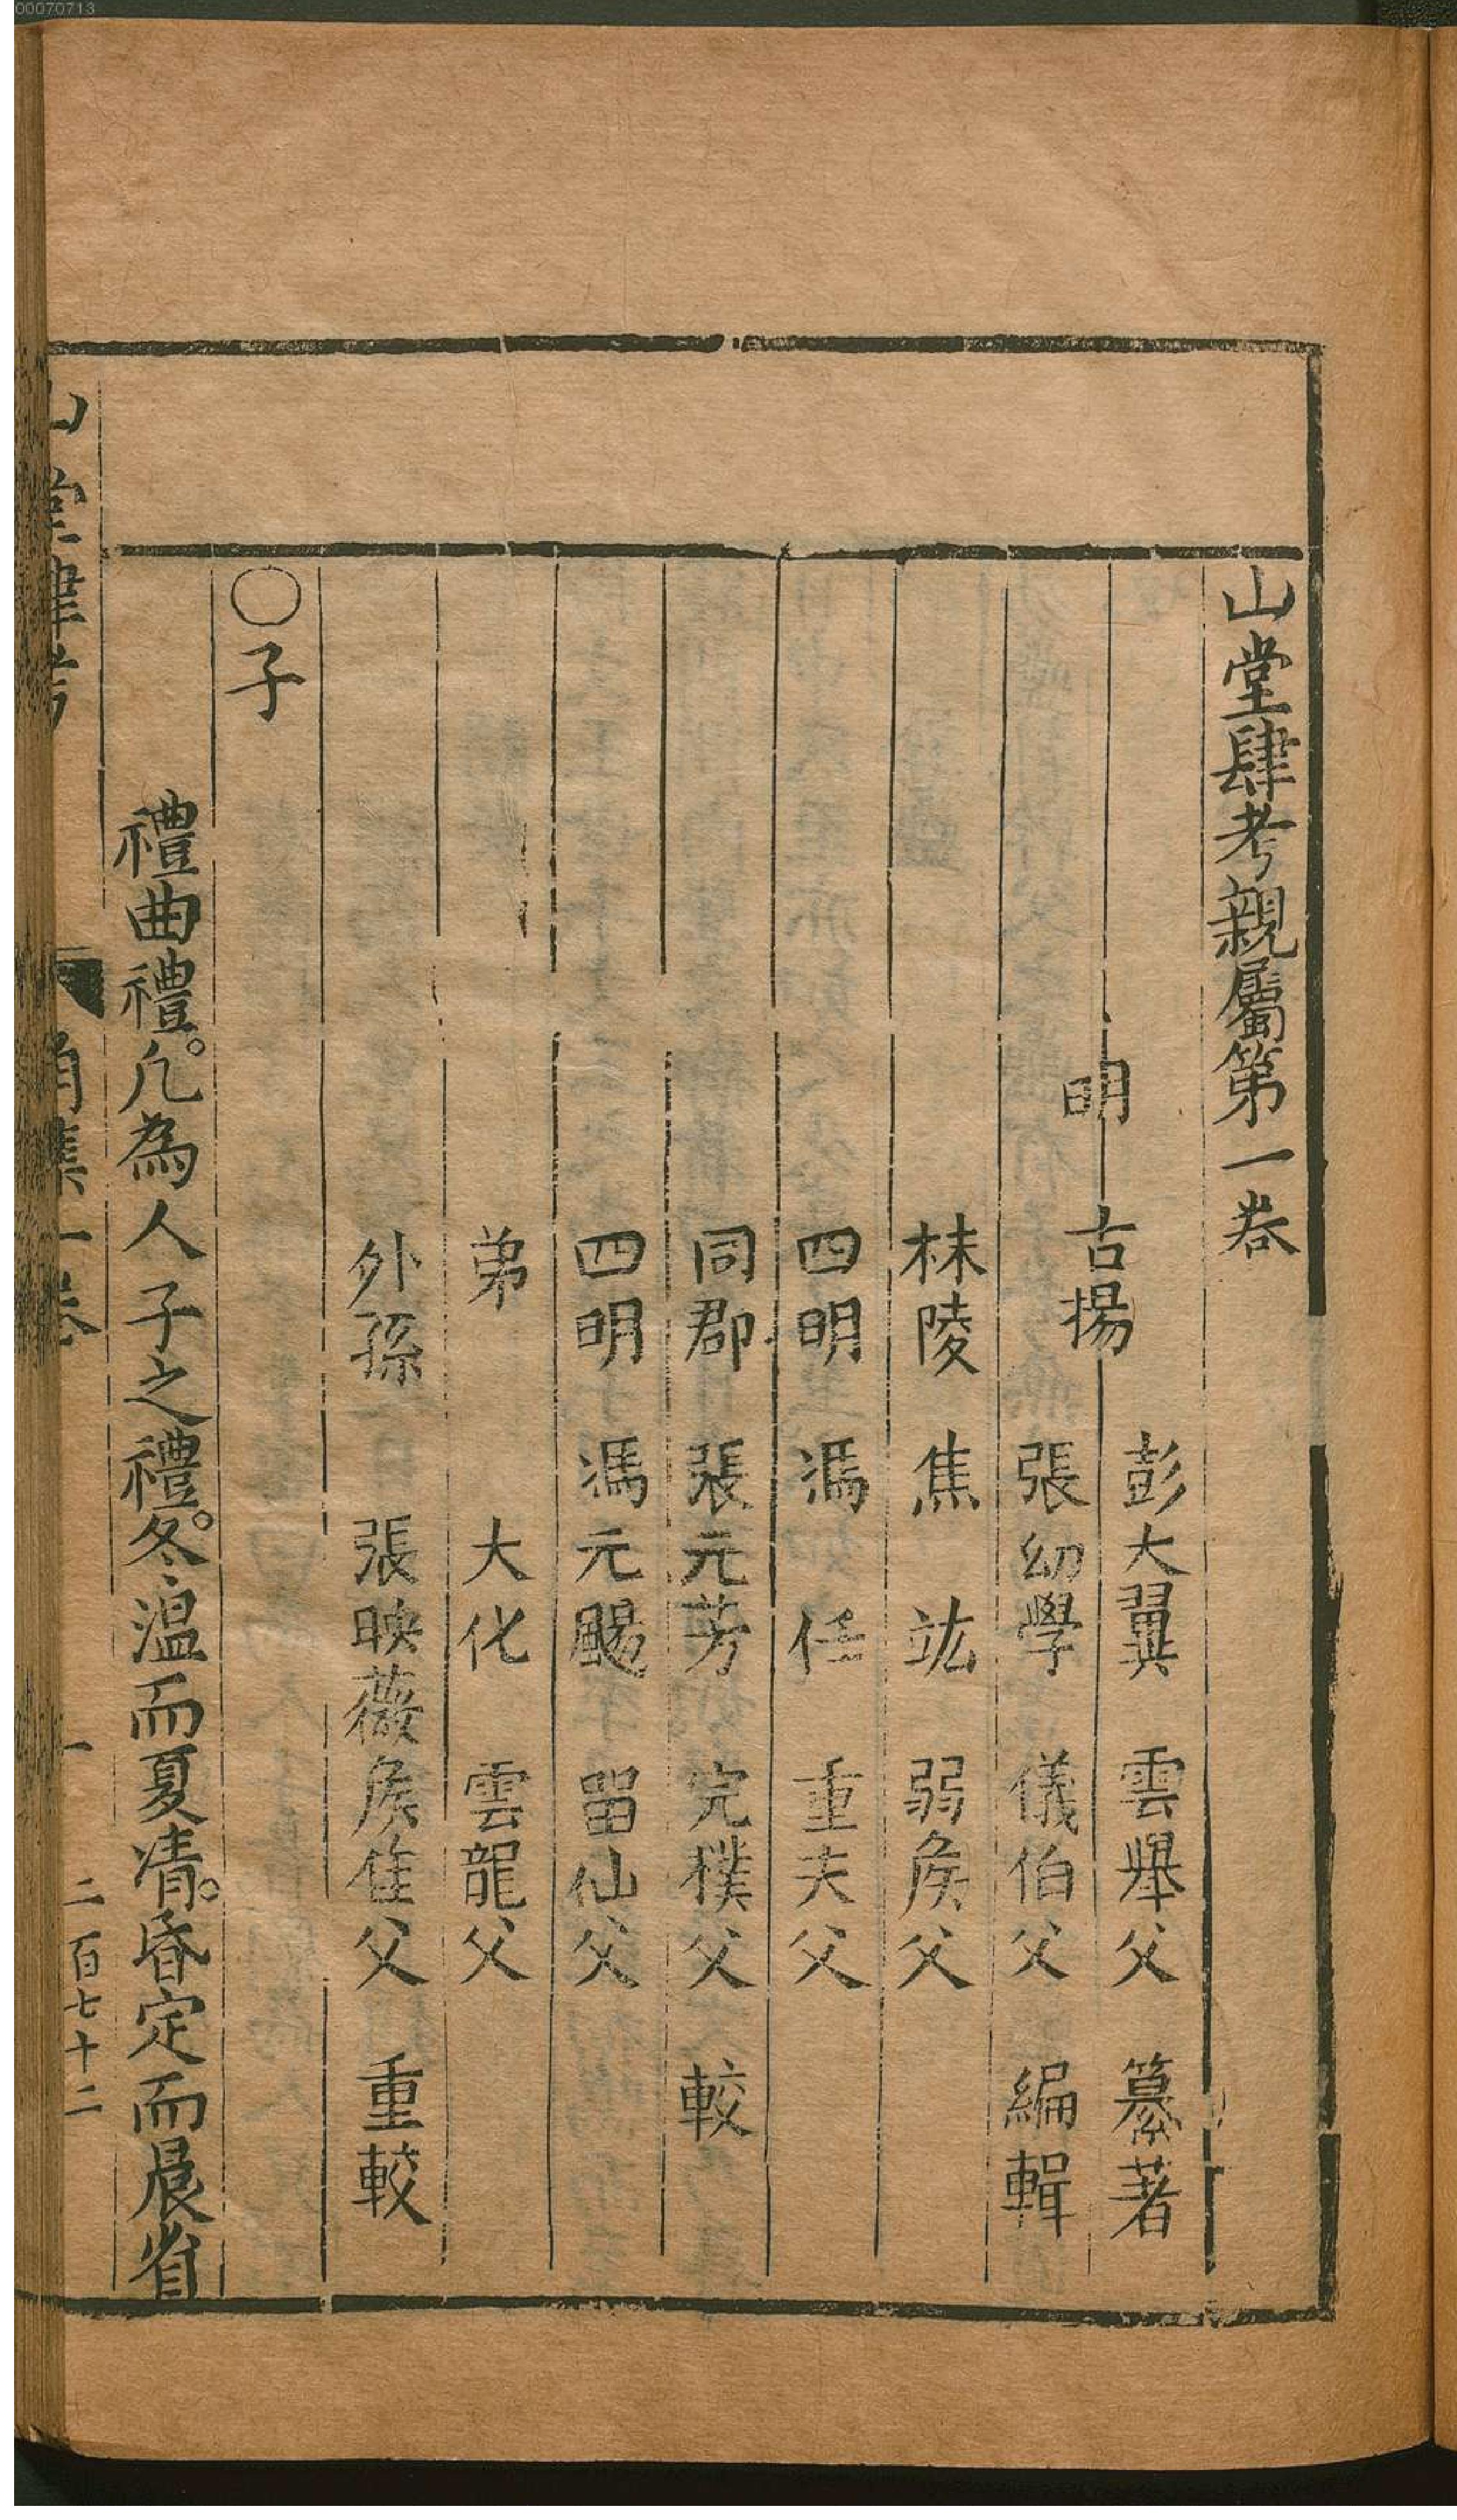 00070713
山堂肆考親屬第一卷
明 古揚
彭大翼 雲舉父 纂著
張幼學 儀伯父 編輯
秣陵 焦 竑 弱侯父
四明 馮 任 重夫父
同郡 張元芳 完樸父 較
四明 馮元颺 留仙父
弟 大化 雲龍父
外孫 張映薇侯隹父 重較
〇子
禮曲禮。凡為人子之禮。冬溫而夏凊。昏定而晨省
山堂肆考 角集一卷 一 二百七十二